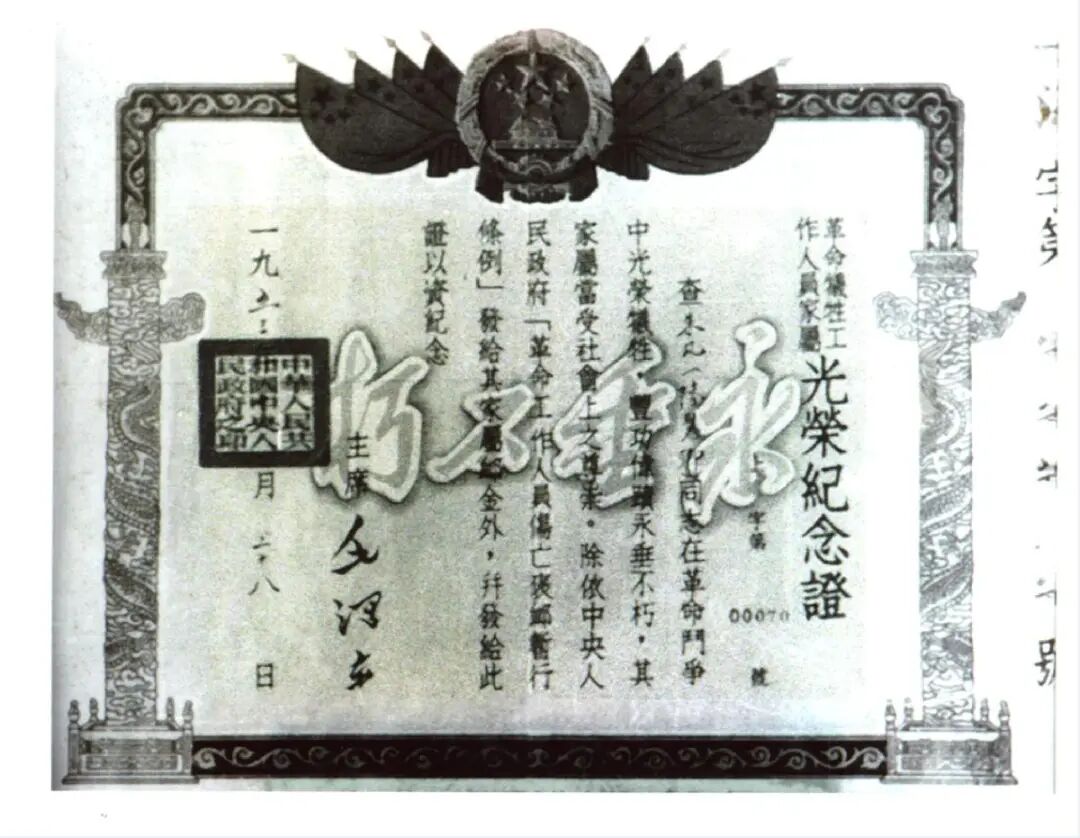 字第
号
革命犧牲工
作人員家屬
光榮紀念證
字第 00070 號
查朱凡同志在革命鬥爭
中光榮犧牲，豐功偉績永垂不朽，其
家屬當受社會上之尊崇。除依中央人
民政府「革命工作人員傷亡褒卹暫行
條例」發給其家屬卹金外，幷發給此
證以資紀念
永垂不朽
主席 毛澤东
一九五 月 八日
中華人民共
和國中央人
民政府之印